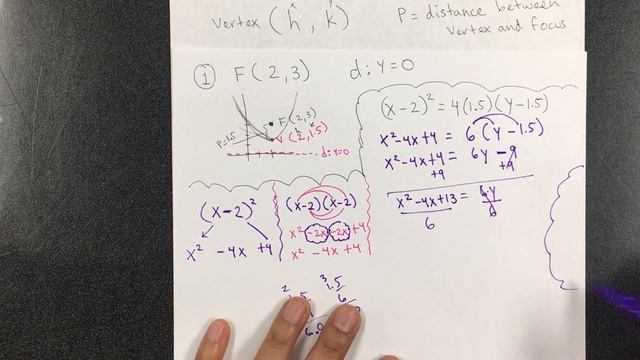 vertex (h, k)
x y
P = distance between
vertex and focus
① F(2,3) d: y=0
F(2,3)
h k
V(2,1.5)
P=1.5
d: y=0
(x-2)² = 4(1.5)(y-1.5)
x²-4x+4 = 6(y-1.5)
x²-4x+4 = 6y-9
+9 +9
x²-4x+13 = 6y
6 6
(x-2)²
x² -4x +4
(x-2)(x-2)
x² -2x -2x +4
x² -4x +4
2 3
1.5
6
6.0